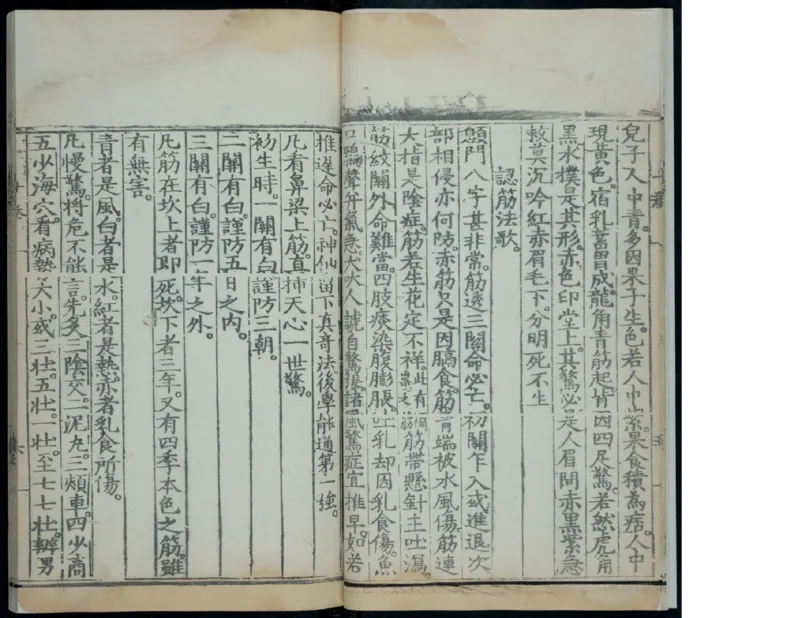 兒子人中青多因果子生色若人中紫果食積為痞人中
現黃色宿乳蓄胃成龍角青筋起皆因四足驚若然虎角
黑水撲是其形赤色印堂上其驚必是人眉間赤黑紫急
救莫沉吟紅赤眉毛下分明死不生
認筋法歌
顖門八字甚非常筋透三關命必亡初關乍入或進退次
部相侵亦何防赤筋只是因膈食筋青端被水風傷筋連
大指是陰症筋若生花定不祥此有筋帶懸針主吐瀉
筋紋關外命難當四肢痰染腹膨脹吐乳却因乳食傷魚
口鴉聲并氣急犬吠人諕自驚張諸風驚症宜推早如若
推遲命必亡神仙留下真奇法後學能通第一強
凡看鼻梁上筋直揷天心一世驚
初生時一關有白謹防三朝
二關有白謹防五日之內
三關有白謹防一年之外
凡筋在坎上者即死坎下者三年又有四季本色之筋雖
有無害
青者是風白者是水紅者是熱赤者乳食所傷
凡慢驚將危不能言先多三陰交二泥丸三頰車四少商
五少海穴看病勢大小或三壯五壯一壯至七七壯辨男